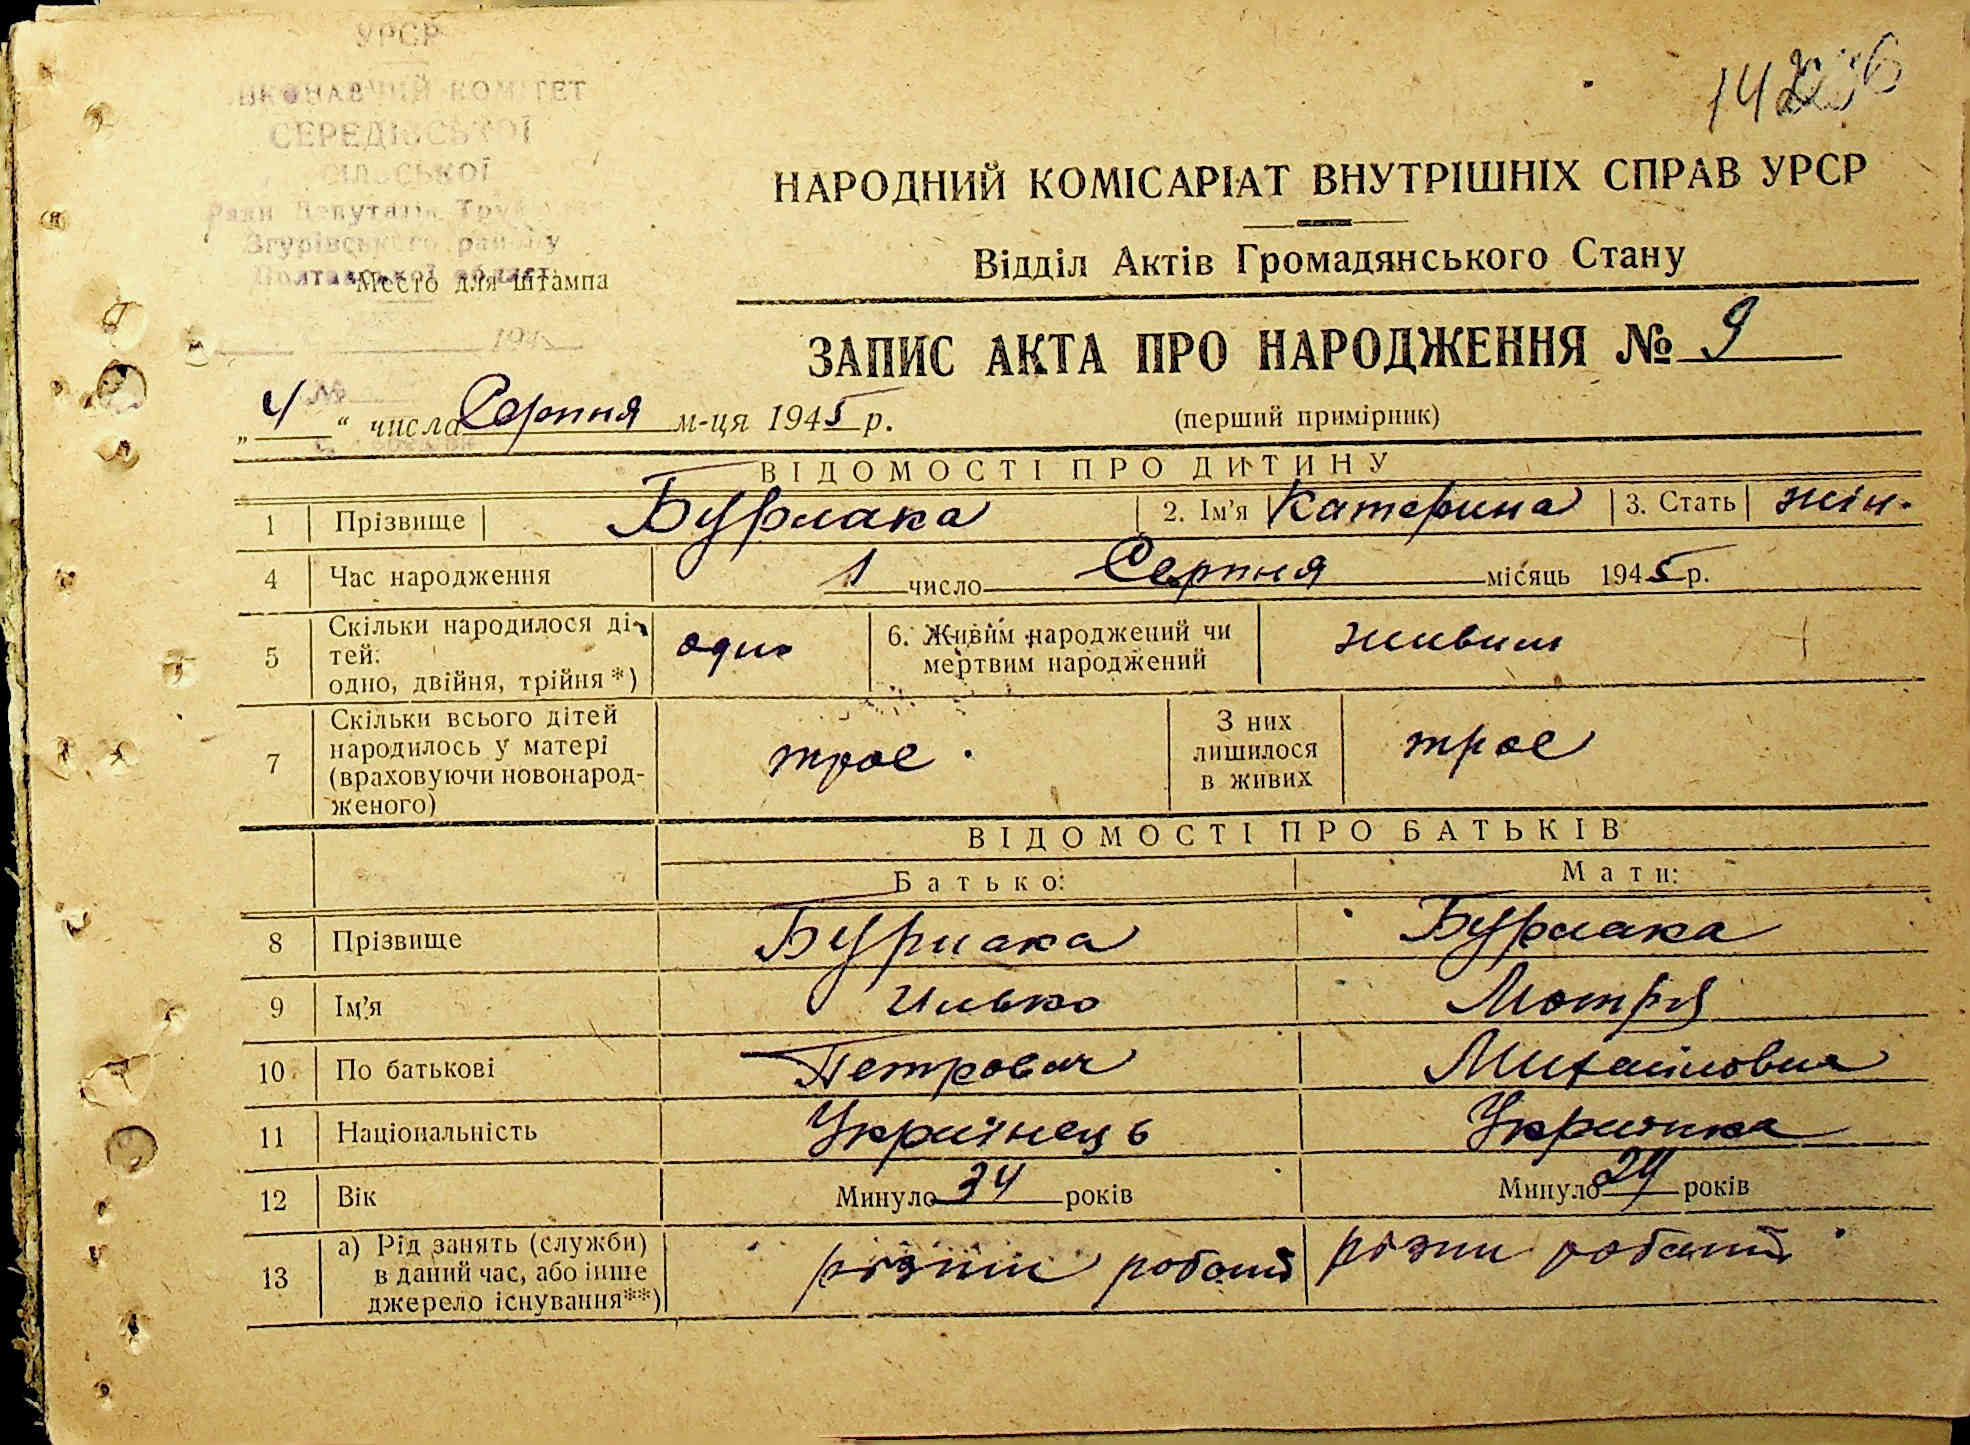 УРСР
ВИКОНАВЧИЙ КОМІТЕТ
СЕРЕДІВСЬКОЇ
СІЛЬСЬКОЇ
Ради Депутатів
Згурівського району
Полтавської області
Место для штампа
НАРОДНИЙ КОМІСАРІАТ ВНУТРІШНІХ СПРАВ УРСР
Відділ Актів Громадянського Стану
ЗАПИС АКТА ПРО НАРОДЖЕННЯ № 9
„4“ числа Серпня м-ця 1945 р.
(перший примірник)
ВІДОМОСТІ ПРО ДИТИНУ
1 Прізвище Бурлака 2. Ім’я Катерина 3. Стать жін.
4 Час народження 1 число Серпня місяць 1945 р.
5 Скільки народилося дітей: одно, двійня, трійня *) одно 6. Живим народжений чи мертвим народжений живим
7 Скільки всього дітей народилось у матері (враховуючи новонародженого) троє. З них лишилося в живих троє
ВІДОМОСТІ ПРО БАТЬКІВ
Батько: Мати:
8 Прізвище Бурлака Бурлака
9 Ім’я Илько Мотря
10 По батькові Петрович Михайловна
11 Національність Українець Українка
12 Вік Минуло 34 років Минуло 24 років
13 а) Рід занять (служби) в даний час, або інше джерело існування**) різни роботи різни роботи